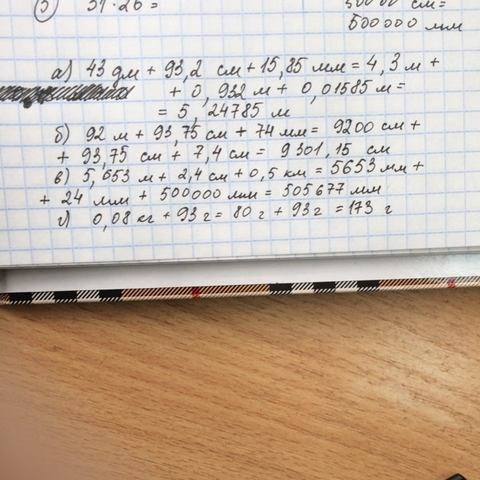 ③ 31 · 26 =
50000 см =
500000 мм
а) 43 дм + 93,2 см + 15,85 мм = 4,3 м +
+ 0,932 м + 0,01585 м =
= 5,24785 м
б) 92 м + 93,75 см + 74 мм = 9200 см +
+ 93,75 см + 7,4 см = 9301,15 см
в) 5,653 м + 2,4 см + 0,5 км = 5653 мм +
+ 24 мм + 500000 мм = 505677 мм
г) 0,08 кг + 93 г = 80 г + 93 г = 173 г